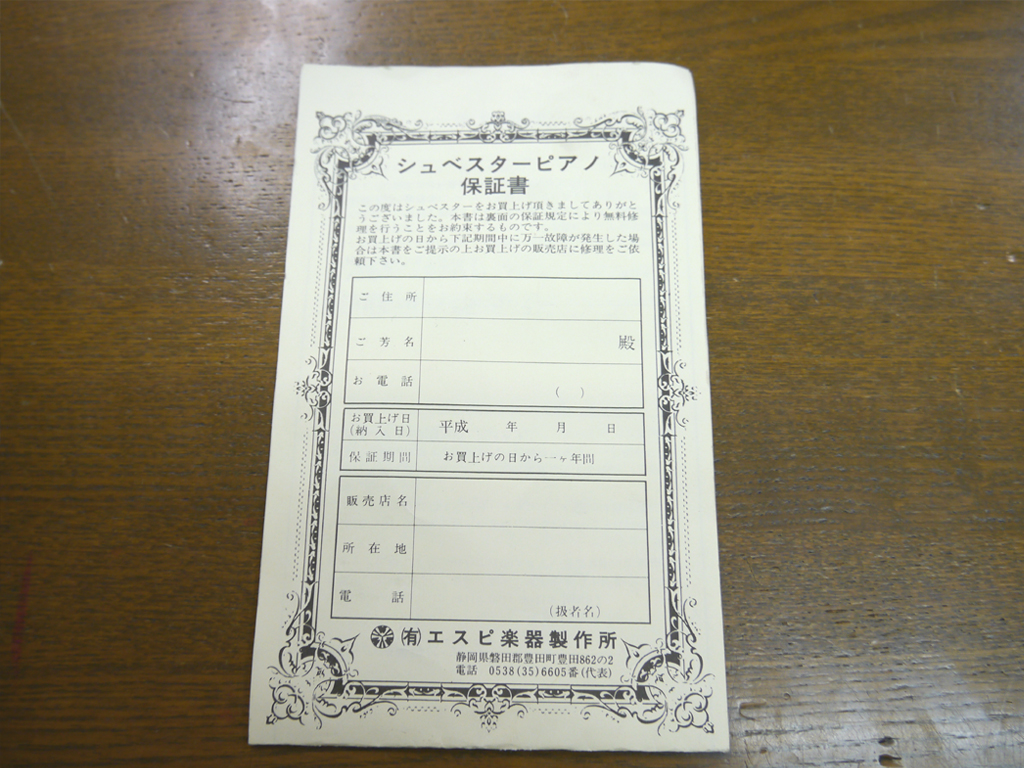 シュベスターピアノ
保証書
この度はシュベスターをお買上げ頂きましてありがと
うございました。本書は裏面の保証規定により無料修
理を行うことをお約束するものです。
お買上げの日から下記期間中に万一故障が発生した場
合は本書をご提示の上お買上げの販売店に修理をご依
頼下さい。
ご住所
ご芳名 殿
お電話 ( )
お買上げ日
(納入日) 平成 年 月 日
保証期間 お買上げの日から一ヶ年間
販売店名
所在地
電話 (扱者名)
㈲エスピ楽器製作所
静岡県磐田郡豊田町豊田862の2
電話 0538(35)6605番(代表)